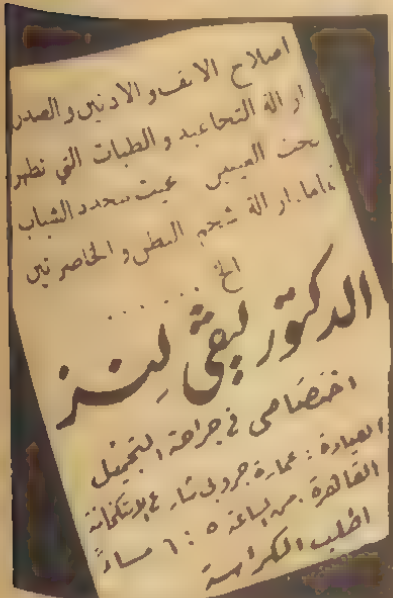 اصلاح الانف والاذنين والصدر
ازالة التجاعيد والطبات التي تظهر
تحت العينين بحيث يتجدد الشباب
تماما. ازالة شحم البطن والخاصرتين
الخ . . . . . .
الدكتور ليفي لنز
اختصاصي في جراحة التجميل
العيادة : عمارة جروبي شارع الانتكخانة
القاهرة . من الساعة ٥ : ٦ مساءً
اطلب الكراسة